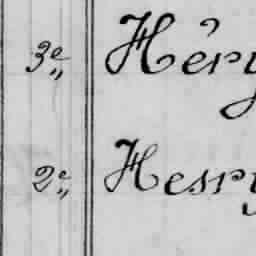 3e„ Héry
2e„ Henry